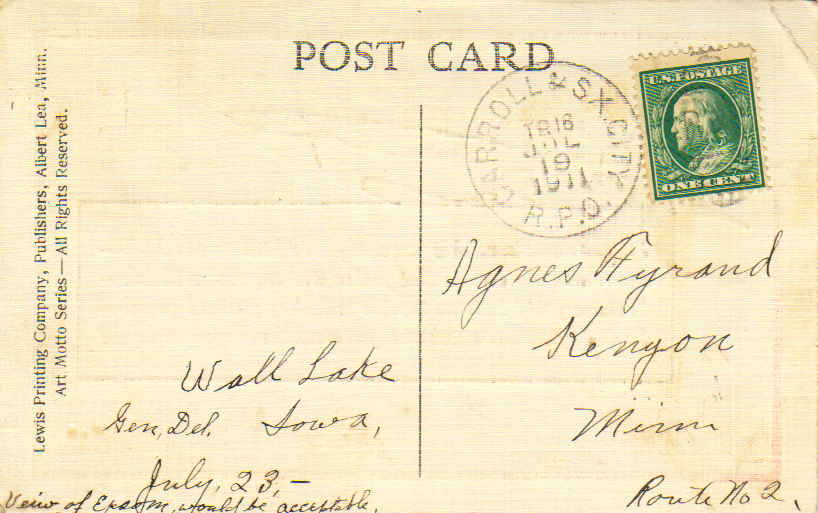 POST CARD
Lewis Printing Company, Publishers, Albert Lea, Minn.
Art Motto Series — All Rights Reserved.
CARROLL & SX. CITY
TR 16
JUL
19
1911
R.P.O.
U.S. POSTAGE
ONE CENT
Agnes Fyrand
Kenyon
Minn
Route No 2,
Wall Lake
Gen, Del. Iowa,
July, 23, —
View of Epsom, would be acceptable,